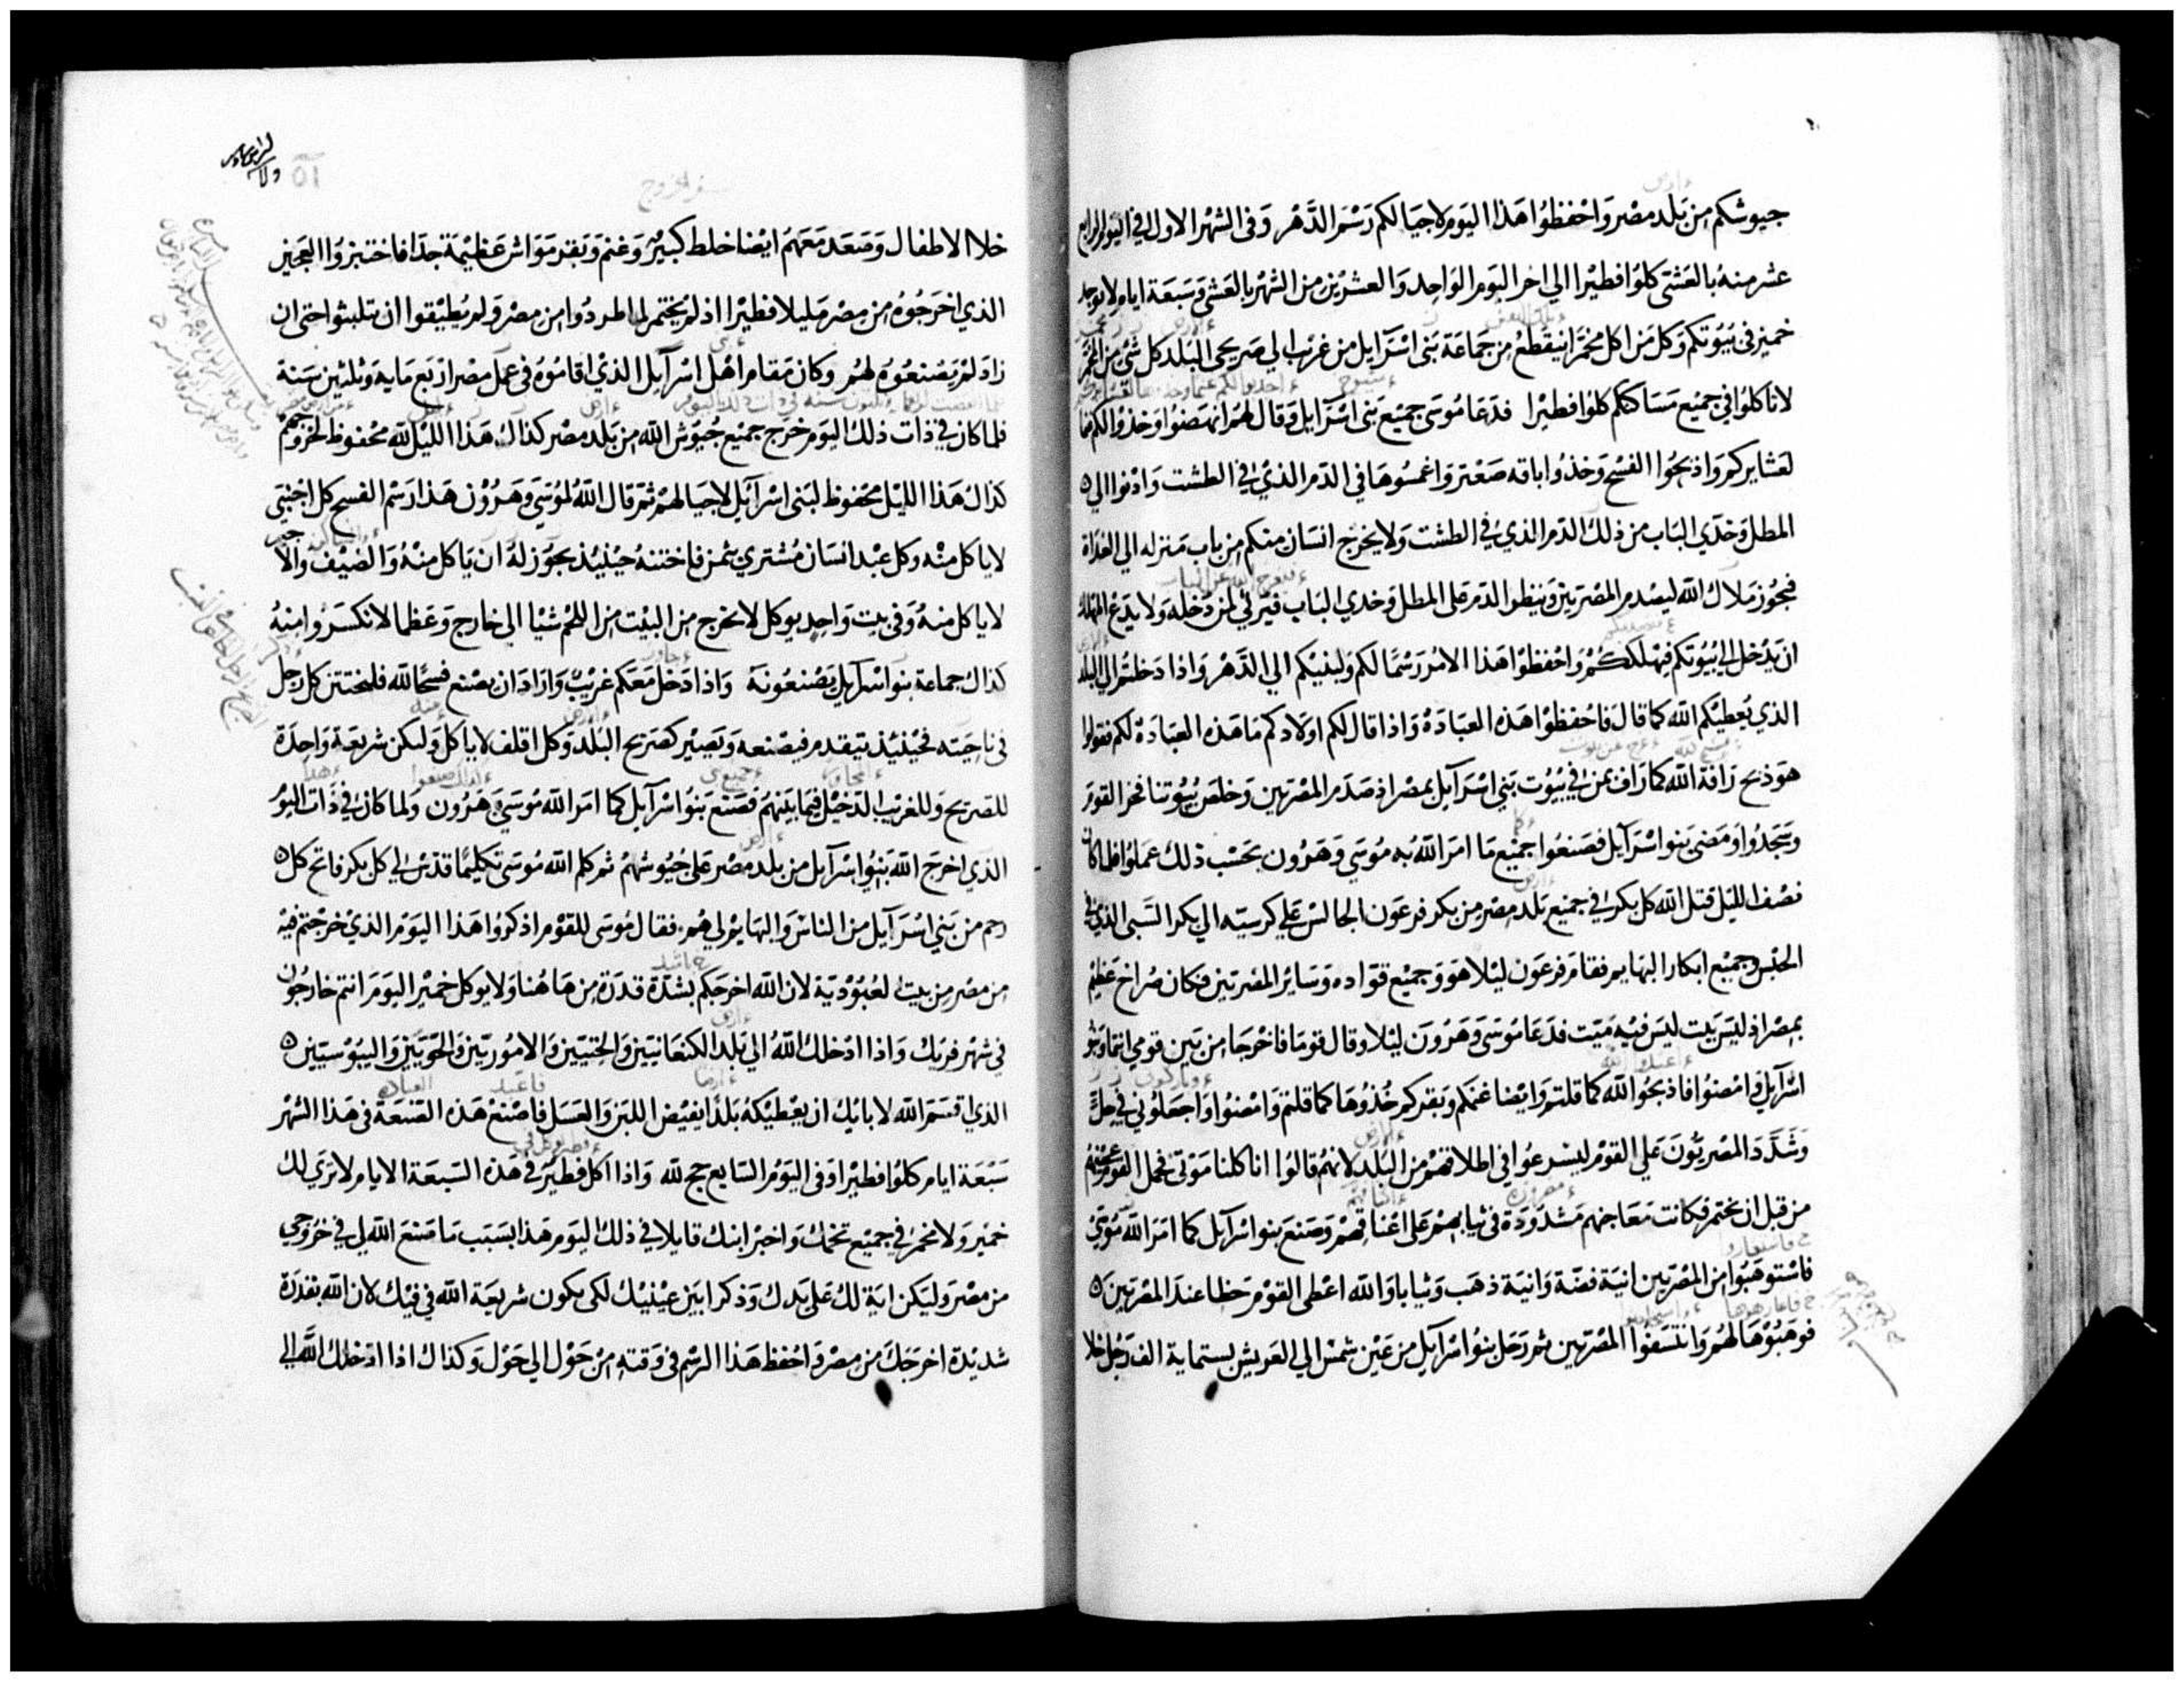 جيوشكم من بلد مصر واحفظوا هذا اليوم لاجيالكم رسم الدهر وفى الشهر الاول في اليوم الرابع
عشر منه بالعشى كلوا فطيرا الي اخر اليوم الواحد والعشرين من الشهر بالعشي وسبعة ايام ولا يوجد
خمير فى بيوتكم وكل من اكل مخمرا ينقطع من جماعة بنى اسرآيل من غريب الي صريحي البلد كل شي من المخمر
لا تاكلوا في جميع مساكنكم كلوا فطيرا فدعا موسى جميع بنى اسرآيل وقال لهم انهضوا وخذوا لكم غنما
لعشايركم واذبحوا الفسح وخذوا باقه صعتر واغمسوها في الدم الذي في الطشت وادنوا الي
المطل وخدّي الباب من ذلك الدم الذي في الطشت ولا يخرج انسان منكم من باب منزله الي الغداة
فيجوز ملاك الله ليصدم المصريين وينظر الدم على المطل وخدي الباب فيرثي لمن دخله ولا يدع المهلك
ان يدخل الي بيوتكم فيهلككم واحفظوا هذا الامر رسما لكم ولبنيكم الي الدهر واذا دخلتم الي البلد
الذي يعطيكم الله كما قال فاحفظوا هذه العبادة واذا قال لكم اولادكم ما هذه العبادة لكم فقولوا
هو ذبح رافة الله كما راف بمن في بيوت بني اسرآيل بمصر اذ صدم المصريين وخلص بيوتنا فخر القوم
وسجدوا ومضى بنو اسرآيل فصنعوا جميع ما امر الله به موسي وهرون بحسب ذلك عملوا فلما كان
نصف الليل قتل الله كل بكر في جميع بلد مصر من بكر فرعون الجالس علي كرسيه الي بكر السبي الذي في
الحبس وجميع ابكار البهايم فقام فرعون ليلا هو وجميع قواده وساير المصريين فكان صراخ عظيم
بمصر اذ ليس بيت ليس فيه ميت فدعا موسى وهرون ليلا وقال قوما فاخرجا من بين قومي انتما وبنو
اسرآيل وامضوا فاذبحوا الله كما قلتم وايضا غنمكم وبقركم خذوها كما قلتم وامضوا واجعلوني في حل
وشدد المصريون علي القوم ليسرعوا في اطلاقهم من البلد لانهم قالوا انا كلنا موتى فحمل القوم عجينهم
من قبل ان يختمر فكانت معاجنهم مشدودة فى ثيابهم على اعناقهم وصنع بنو اسرآيل كما امر الله موسى
فاستوهبوا من المصريين انية فضة وانية ذهب وثيابا والله اعطى القوم حظا عند المصريين
فوهبوها لهم وانتسفوا المصريين ثم رحل بنو اسرآيل من عين شمس الي العريش بستماية الف رجل خلا
سفر الخروج
٥١
خلا الاطفال وصعد معهم ايضا خلط كبير وغنم وبقر مواش عظيمة جدا فاختبزوا العجين
الذي اخرجوه من مصر مليلا فطيرا اذ لم يختمر لما طردوا من مصر ولم يطيقوا ان يتلبثوا حتى ان
زاد لم يصنعوه لهم وكان مقام اهل اسرآيل الذي اقاموه فى عمل مصر اربع ماية وثلثين سنة
فلما كان في ذات ذلك اليوم خرج جميع جيوش الله من بلد مصر كذاك هذا الليل لله محفوظ لخروجهم
كذاك هذا الليل محفوظ لبنى اسرآيل لاجيالهم ثم قال الله لموسي وهرون هذا رسم الفسح كل اجنبي
لا ياكل منه وكل عبد انسان مشتري بثمن فاختنه حينيذ يجوز له ان ياكل منه والضيف والاجير
لا ياكل منه وفى بيت واحد يوكل لا تخرج من البيت من اللحم شيا الي خارج وعظما لا تكسروا منه
كذاك جماعة بنو اسرآيل يصنعونه واذا دخل معكم غريب واراد ان يصنع فسحا لله فليختتن كل رجل
فى ناحيته فحينيذ يتقدم فيصنعه ويصير كصريح البلد وكل اقلف لا ياكل وليكن شريعة واحدة
للصريح وللغريب الدخيل فيما بينهم فصنع بنو اسرآيل كما امر الله موسي وهرون ولما كان في ذات اليوم
الذي اخرج الله بنوا اسرآيل من بلد مصر على جيوشهم ثم كلم الله موسى تكليما قدس لي كل بكر فاتح كل
رحم من بني اسرآيل من الناس والبهايم لي هم فقال موسى للقوم اذكروا هذا اليوم الذي خرجتم فيه
من مصر من بيت العبودية لان الله اخرجكم بشدة قدرة من هاهنا ولا يوكل خمير اليوم انتم خارجون
في شهر فريك واذا ادخلك الله الي بلد الكنعانيين والحيتيين والاموريين والحويين واليبوسيين
الذي اقسم الله لابايك ان يعطيكه بلدا يفيض اللبن والعسل فاصنع هذه الصنعة فى هذا الشهر
سبعة ايام كلوا فطيرا وفى اليوم السابع حج لله واذا اكل فطير في هذه السبعة الايام لا تري لك
خمير ولا مخمر في جميع تخمك واخبر ابنك قايلا في ذلك اليوم هذا بسبب ما صنع الله لي في خروجي
من مصر وليكن اية لك على يدك وذكرا بين عينيك لكى يكون شريعة الله في فيك لان الله بقدرة
شديدة اخرجك من مصر واحفظ هذا الرسم فى وقته من حول الي حول وكذاك اذا ادخلك الله الي